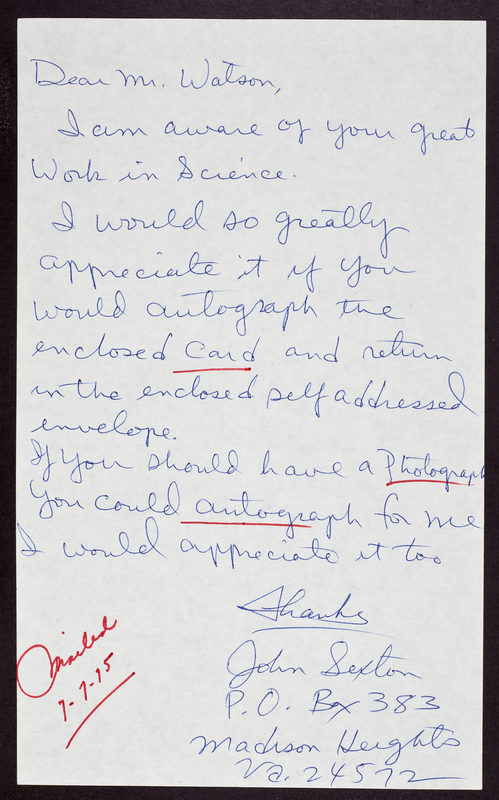 Dear Mr. Watson,
I am aware of your great
Work in Science.
I would so greatly
appreciate it if you
would autograph the
enclosed Card and return
in the enclosed self addressed
envelope.
If you should have a Photograph
You could autograph for me
I would appreciate it too
Thanks
John Sexton
P.O. Box 383
Madison Heights
Va. 24572
Mailed
7-7-75